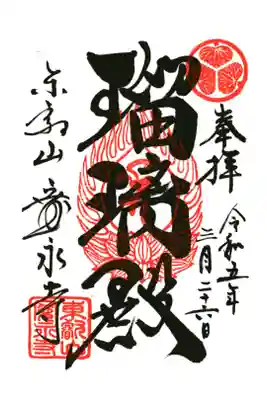 奉拝
令和五年
二月二十六日
瑠璃殿
東叡山 寛永寺
東叡山
寛永寺